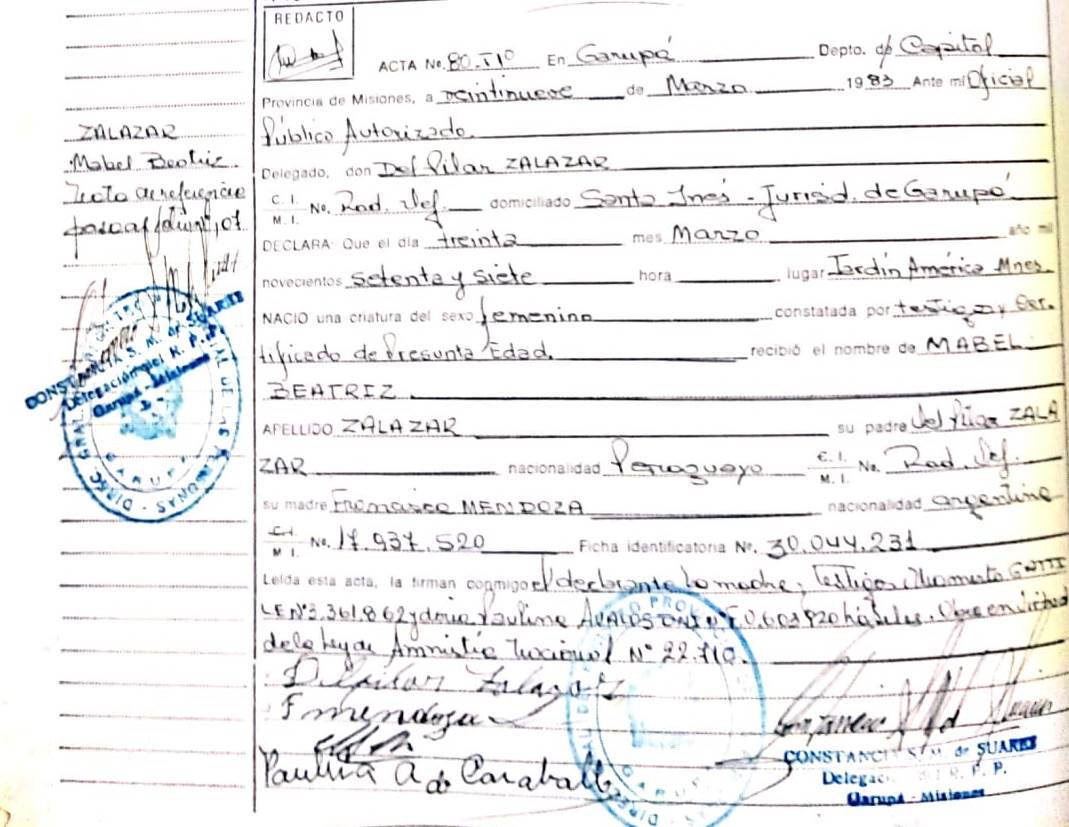 REDACTO
ACTA No. 80. Tº En Garupá Depto. de Capital
Provincia de Misiones, a veintinueve de Marzo 1983 Ante mí Oficial
Público Autorizado.
Delegado, don Del Pilar ZALAZAR
C. I.
M. I. No. Rad. Def. domiciliado Santa Inés - Jurisd. de Garupá
DECLARA: Que el día treinta mes Marzo año mil
novecientos setenta y siete hora lugar Jardín América Mnes.
NACIO una criatura del sexo femenino constatada por testigo y Cer.
tificado de Presunta Edad. recibió el nombre de MABEL
BEATRIZ
APELLIDO ZALAZAR su padre Del Pilar ZALA
ZAR nacionalidad Paraguayo C. I.
M. I. No. Rad. Def.
su madre Francisca MENDOZA nacionalidad argentina
C. I.
M. I. No. 17.937.520 Ficha identificatoria No. 30.044.231
Leída esta acta, la firman conmigo el declarante la madre, Testigos GOTTI
LE Nº 3.361.862 y doña Paulina AVALOS DNI Nº hábiles. Obra en
de la Ley de Amnistía Nacional Nº 22.710.
Delpilar Zalazar
F mendoza
Paulina A de Caraballo
ZALAZAR
Mabel Beatriz
CONSTANCIA S. M. de SUAREZ
Delegación del R. P. P.
Garupá - Misiones
CONSTANCIA S. M. de SUAREZ
Delegac. del R. P. P.
Garupá - Misiones